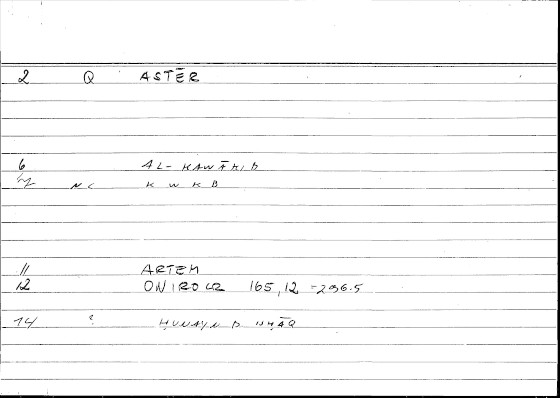 2 Q ASTĒR
6 AL-KAWĀKIB
NC K W K B
11 ARTEM
12 ONIROCR 165,12 =296.5
14 ? ḤUNAYN B